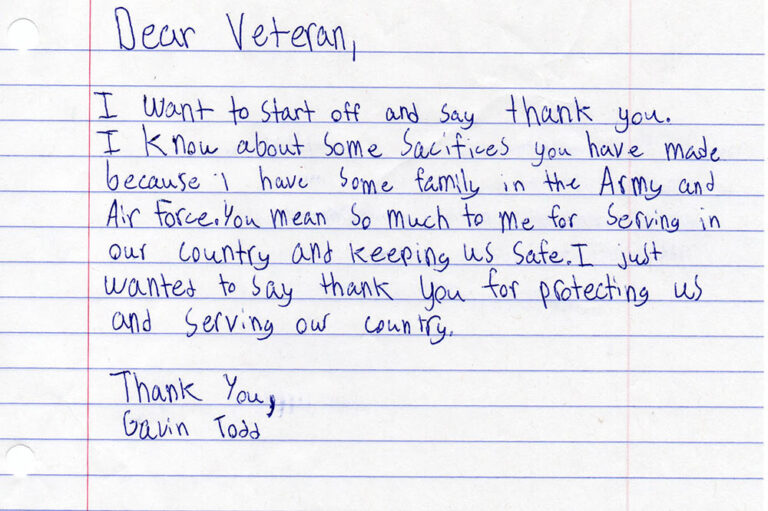 Dear Veteran,
I want to start off and say thank you.
I know about some Sacifices you have made
because i have some family in the Army and
Air Force. You mean so much to me for serving in
our country and keeping us safe. I just
wanted to say thank you for protecting us
and serving our country.
Thank You,
Gavin Todd